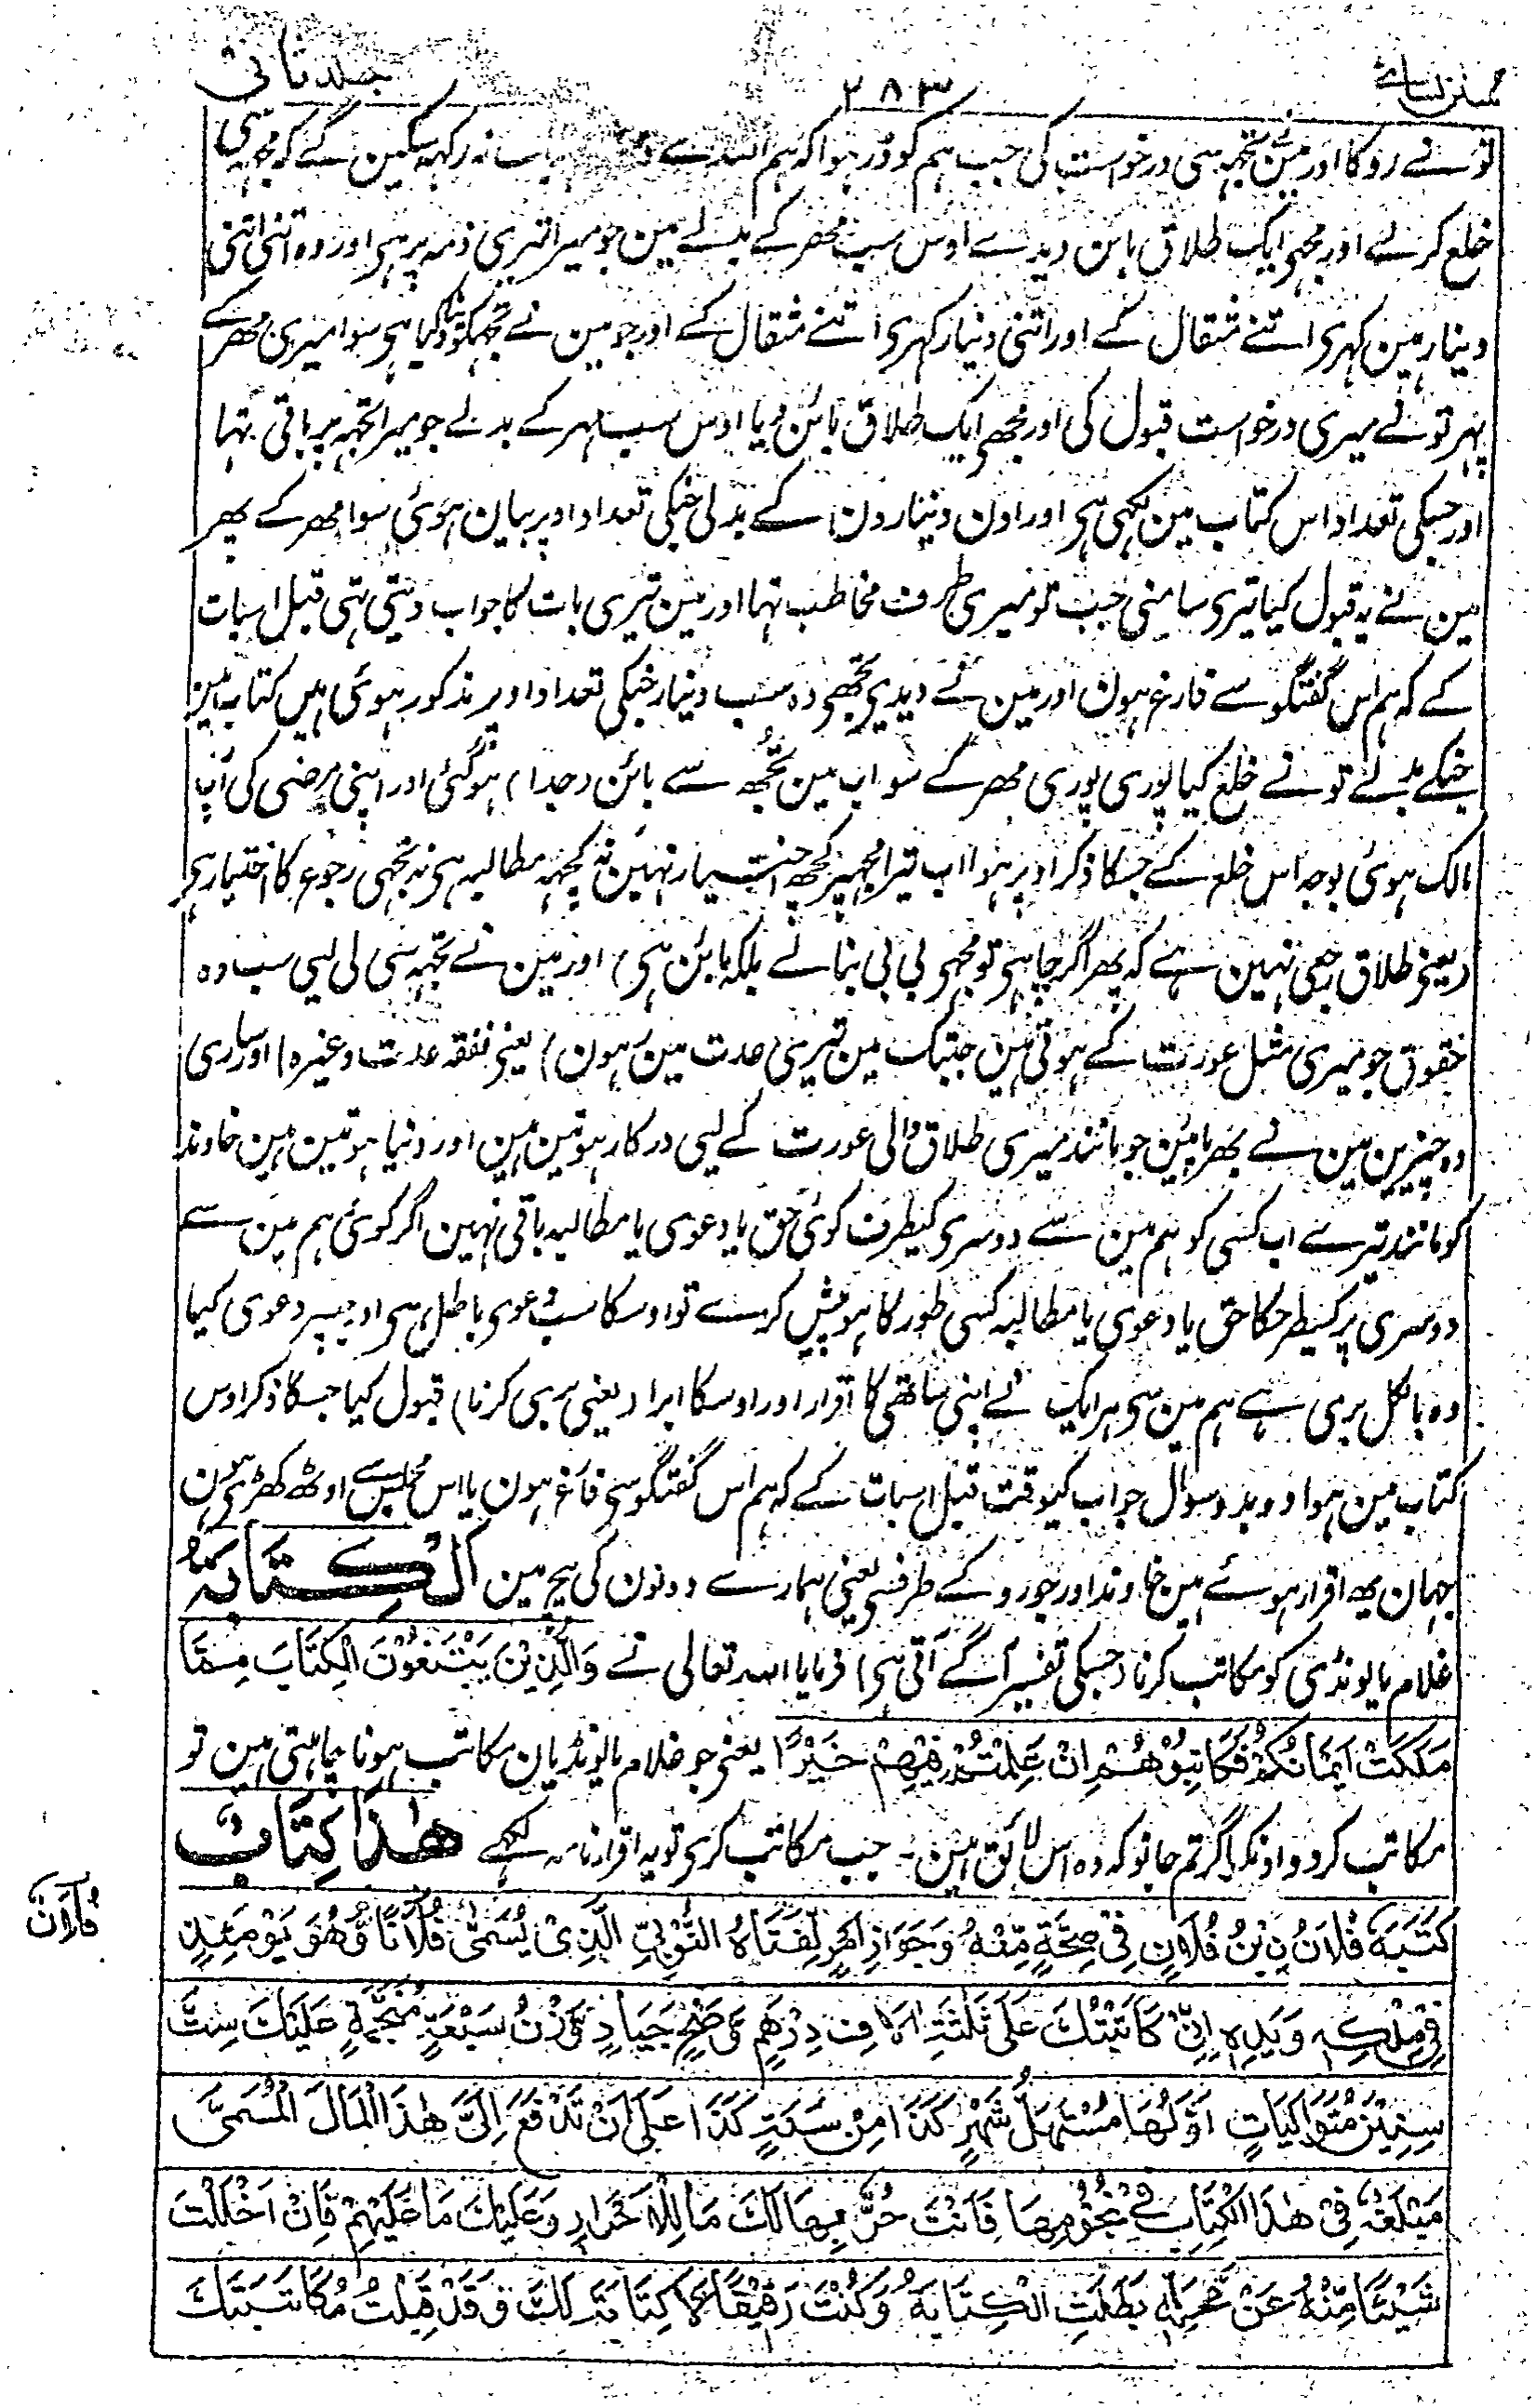 سنن نسائے
۲۸۳
جلد ثانی
تو نے روکا اور مین تجہہ سی درخوست کی جب ہم کو ڈر ہوا کہ ہم اللہ کے نہ رکھہ سکین گے کہ مجہہ سی
خلع کر لے اور مجہی ایک طلاق بائن دیدے اوس سب مھر کے بدلے مین جو میرا تیری ذمہ پر ہی اور وہ اتنی اتنی
دینار ہین کہری اتنے مثقال کے اور اتنی دینار کہری اتنے مثقال کے اور جو مین نے تجہکو دنیا کیا ہی سوا میری مھر کے
پہر تو نے میری درخواست قبول کی اور مجھی ایک طلاق بائن دیا اوس سب مہر کے بدلے جو میرا تجہہ پر باقی تہا
اور جسکی تعداد اس کتاب مین لکہی ہی اور اون دینارون کے بدلی جنکی تعداد اوپر بیان ہوئی سوا مھر کے پھر
مین نے یہ قبول کیا تیری سامنی جب تو میری طرف مخاطب تہا اور مین تیری بات کا جواب دیتی تہی قبل اسبات
کے کہ ہم اس گفتگو سے فارغ ہون اور مین نے دیدیے تجھی وہ سب دینار جنکی تعداد اوپر مذکور ہوئی اس کتاب مین
جنکے بدلے تو نے خلع کیا پوری پوری مھر کے سوا اب مین تجھ سے بائن (جدا) ہو گئی اور اپنی مرضی کی آپ
مالک ہوئی بوجہ اس خلع کے جسکا ذکر اوپر ہوا اب تیرا مجہپر کچھ اختیار نہین نہ کچہہ مطالبہ ہی نہ تجہی رجوع کا اختیار ہی
(یعنی طلاق رجعی نہین ہے کہ پھر اگر چاہی تو مجہی بی بی بنا لے بلکہ بائن ہی) اور مین نے تجہہ سی لی لیی سب وہ
حقوق جو میری مثل عورت کے ہوتی ہین جبتک مین تیری عدت مین ہون (یعنی نفقہ عدت وغیرہ) اور ساری
وہ چیزین مین نے بھر پائین جو مانند میری طلاق والی عورت کے لیی درکار ہوتین ہین اور دنیا ہوتین ہین خاوند
کو مانند تیرے اب کسی کو ہم مین سے دوسری کیطرف کوئی حق یا دعوی یا مطالبہ باقی نہین اگر کوئی ہم مین سے
دوسری پر کسیطرحکا حق یا دعوی یا مطالبہ کسی طور کا ہو پیش کرے تو اوسکا سب دعوی باطل ہی اور جسپر دعوی کیا
وہ بالکل بری ہے ہم مین سی ہر ایک نے اپنی ساتھی کا اقرار اور اوسکا ابرا (یعنی بری کرنا) قبول کیا جسکا ذکر اوس
کتاب مین ہوا دوبدو سوال جواب کیوقت قبل اسبات کے کہ ہم اس گفتگو سی فارغ ہون یا اس مجلس سے اوٹھ کھڑی ہون
جہان یھ اقرار ہوئے ہین خاوند اور جورو کے طرف سی یعنی ہمارے دونون کی بیچ مین الْكِتَابَةُ
غلام یا لونڈی کو مکاتب کرنا (جسکی تفسیر آگے آتی ہی) فرمایا اللہ تعالی نے وَالَّذِيْنَ يَبْتَغُوْنَ الْكِتَابَ مِمَّا
مَلَكَتْ اَيْمَانُكُمْ فَكَاتِبُوْهُمْ اِنْ عَلِمْتُمْ فِيْهِمْ خَيْرًا یعنی جو غلام یا لونڈیان مکاتب ہونا چاہتی ہین تو
مکاتب کر دو اونکو اگر تم جانو کہ وہ اس لائق ہین۔ جب مکاتب کری تو یہ اقرار نامہ لکھے هٰذَا كِتَابٌ
كَتَبَهٗ فُلَانُ بْنُ فُلَانٍ فِيْ صِحَّةٍ مِّنْهُ وَجَوَازِ اَمْرٍ لِّفَتَاهُ النُّوْبِيِّ الَّذِيْ يُسَمّٰى فُلَانًا وَّهُوَ يَوْمَئِذٍ
فُلَان
فِيْ مِلْكِهٖ وَيَدِهٖ اِنِّيْ كَاتَبْتُكَ عَلٰى ثَلٰثَةِ اٰلَافِ دِرْهَمٍ وَضَحٍ جِيَادٍ وَزْنُ سَبْعَةٍ مُنَجَّمَةٍ عَلَيْكَ سِتَّ
سِنِيْنَ مُتَوَالِيَاتٍ اَوَّلُهَا مُسْتَهَلُّ شَهْرِ كَذَا مِنْ سَنَةِ كَذَا عَلٰى اَنْ تَدْفَعَ اِلَيَّ هٰذَا الْمَالَ الْمُسَمّٰى
مَبْلَغُهٗ فِيْ هٰذَا الْكِتَابِ فِيْ نُجُوْمِهَا فَاَنْتَ حُرٌّ بِهَا لَكَ مَا لِلْاَحْرَارِ وَعَلَيْكَ مَا عَلَيْهِمْ فَاِنْ اَخْلَلْتَ
شَيْئًا مِّنْهُ عَنْ مَحِلِّهٖ بَطَلَتِ الْكِتَابَةُ وَكُنْتَ رَقِيْقًا لَا كِتَابَةَ لَكَ وَقَدْ قَبِلْتُ مُكَاتَبَتَكَ